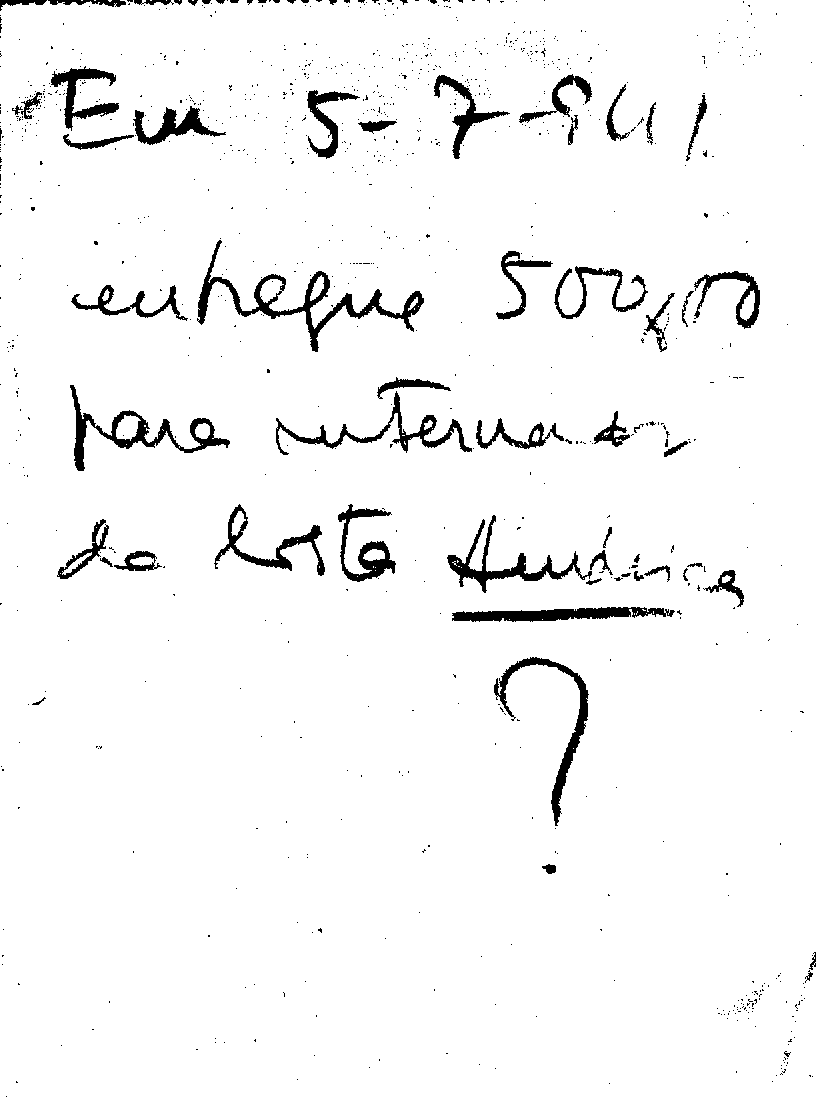 Em 5-7-941
entregue 500$00
para internar
da Costa
?